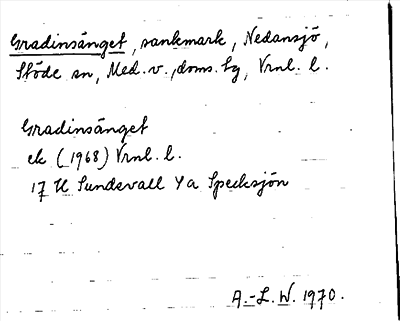 Gradinsänget, sankmark, Nedansjö,
Stöde sn, Med. v., doms. lg, Vrnl. l.
Gradinsänget
ek (1968) Vrnl. l.
17 H Sundsvall Y a Specksjön
A.-L. W. 1970.